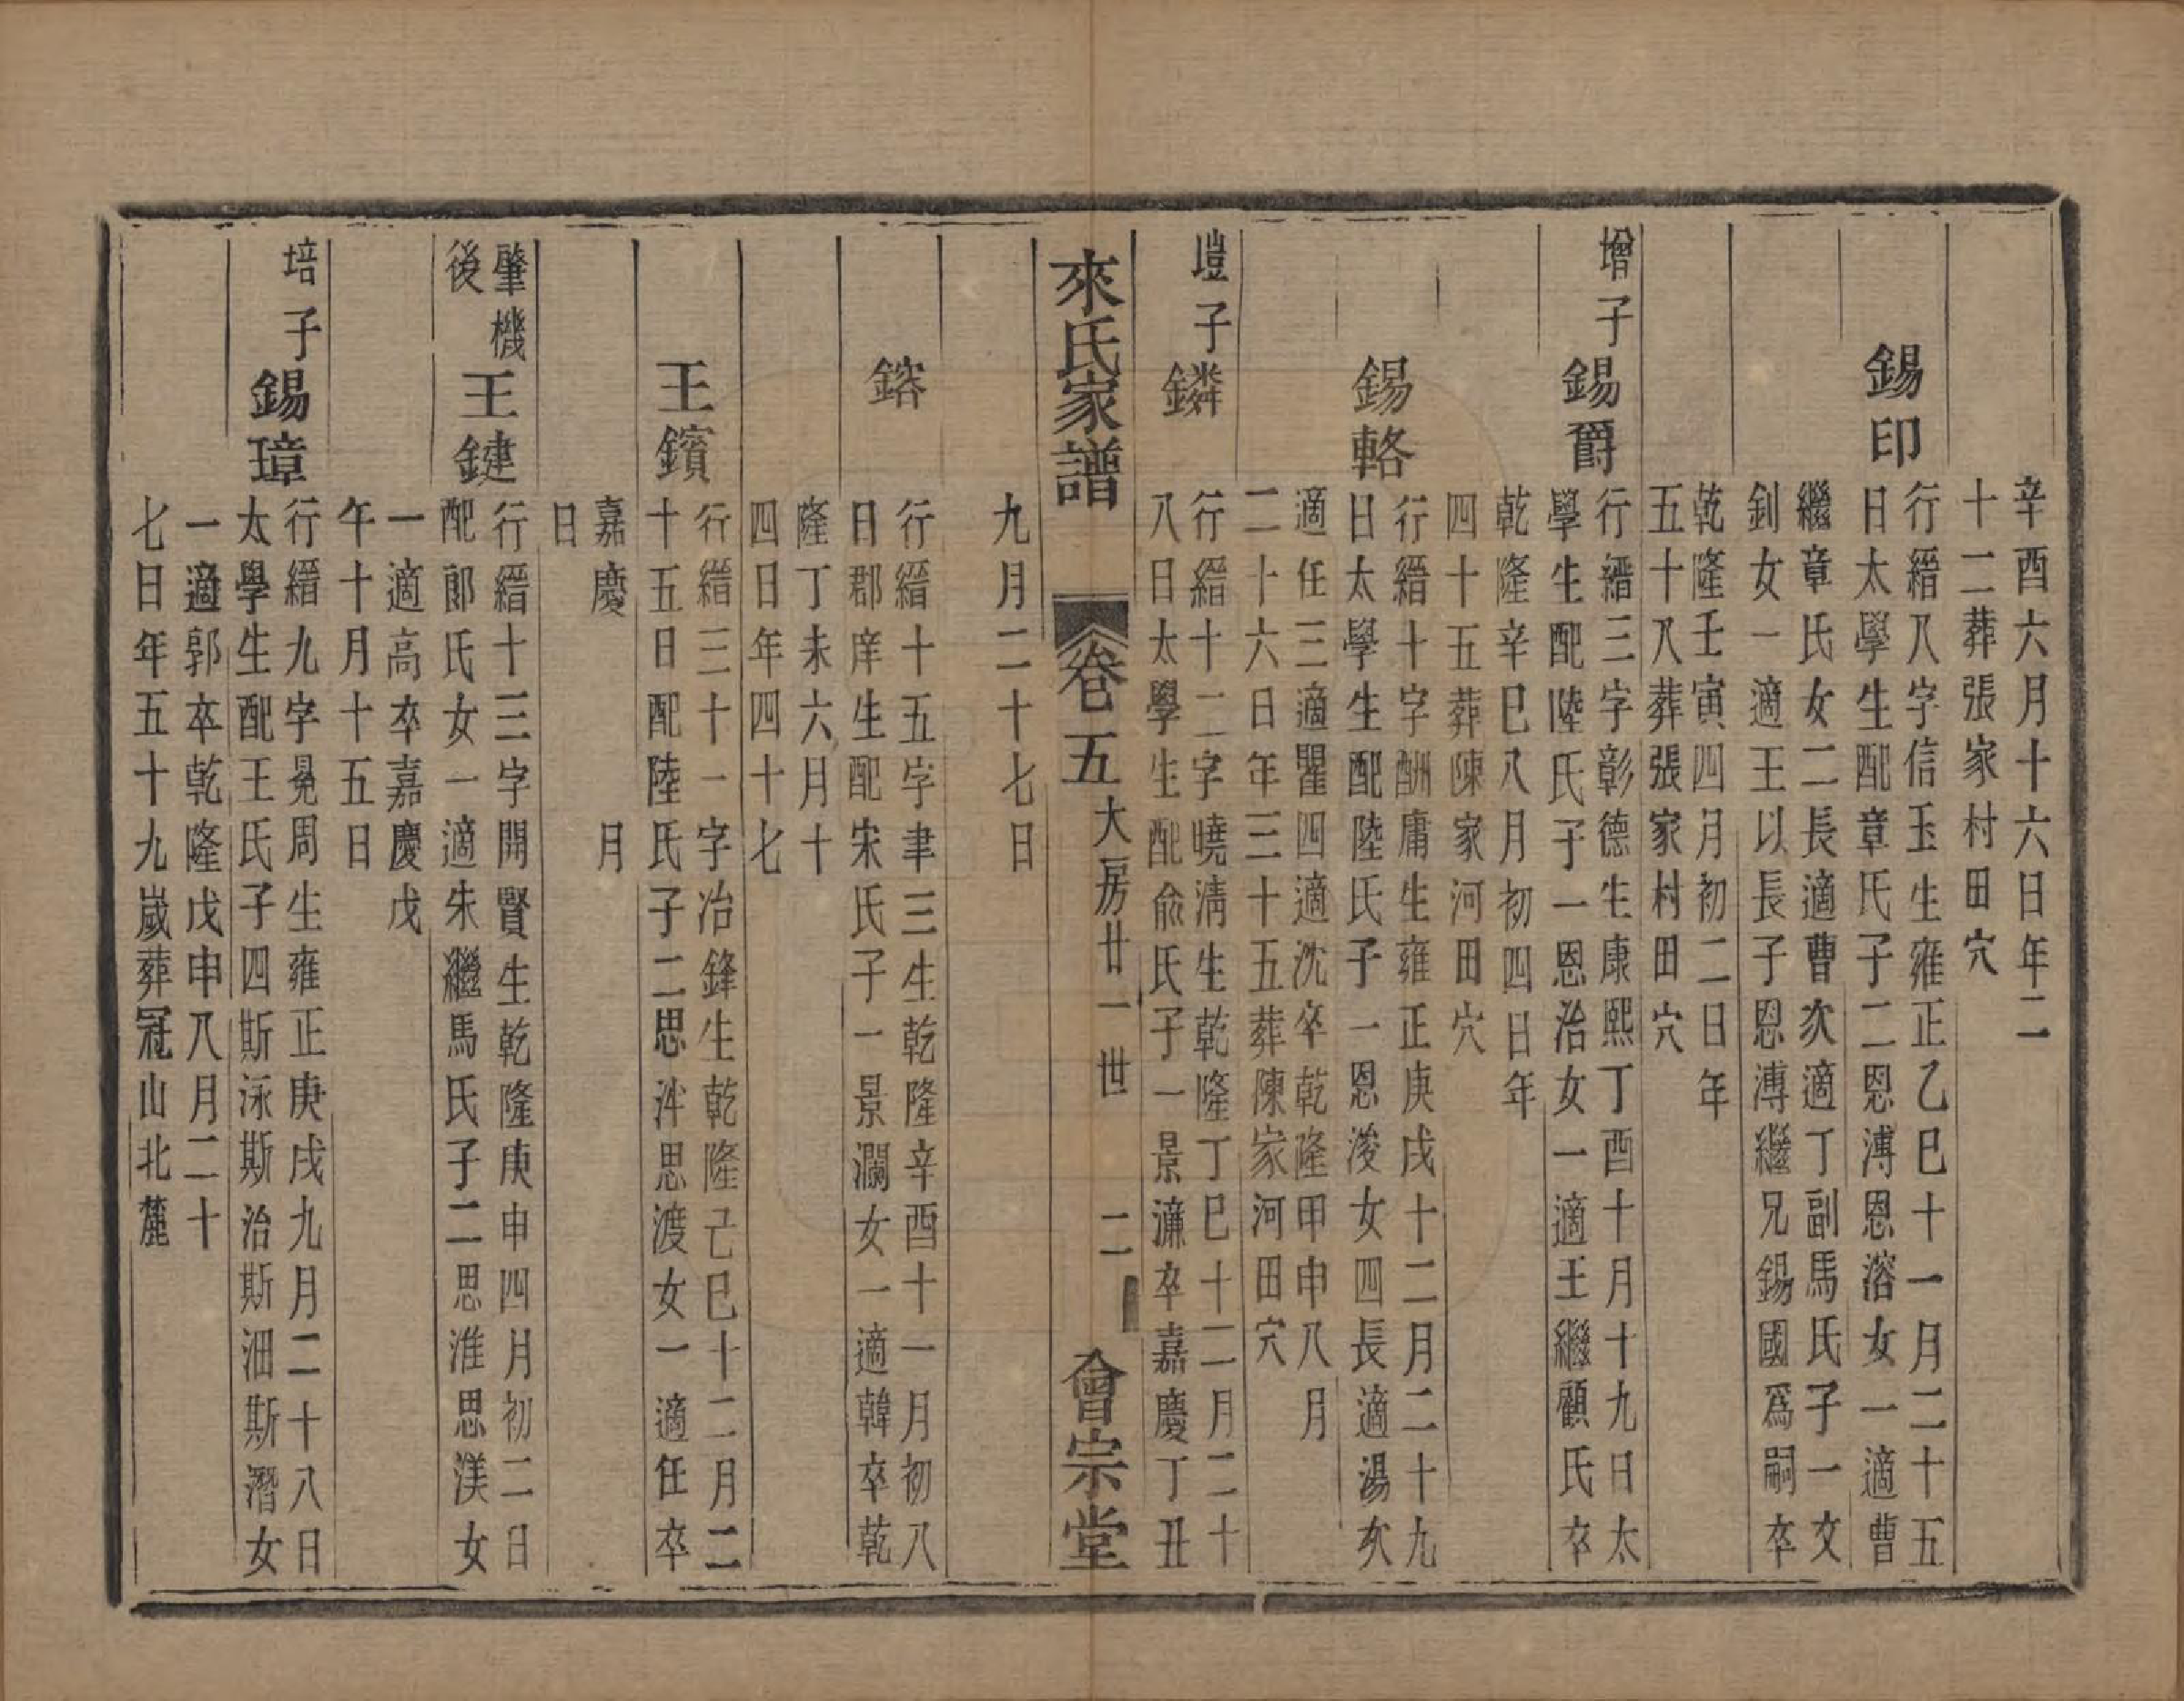 辛酉六月十六日年二
十二葬張家村田穴
錫印
行縉八字信玉生雍正乙巳十一月二十五
日太學生配章氏子二恩溥恩溶女一適曹
繼章氏女二長適曹次適丁副馬氏子一文
釗女一適王以長子恩溥繼兄錫國爲嗣卒
乾隆壬寅四月初二日年
五十八葬張家村田穴
增子
錫爵
行縉三字彰德生康熙丁酉十月十九日太
學生配陸氏子一恩治女一適王繼顧氏卒
乾隆辛巳八月初四日年
四十五葬陳家河田穴
錫輅
行縉十字酬庸生雍正庚戌十二月二十九
日太學生配陸氏子一恩浚女四長適湯次
適任三適瞿四適沈卒乾隆甲申八月
二十六日年三十五葬陳家河田穴
塏子
鏻
行縉十二字曉清生乾隆丁巳十二月二十
八日太學生配俞氏子一景濂卒嘉慶丁丑
來氏家譜
卷五
大房廿一世
二
會宗堂
九月二十七日
鎔
行縉十五字聿三生乾隆辛酉十一月初八
日郡庠生配宋氏子一景瀾女一適韓卒乾
隆丁未六月十
四日年四十七
王鑌
行縉三十一字冶鋒生乾隆己巳十二月二
十五日配陸氏子二思泮思渡女一適任卒
嘉慶 月
日
肇機
後
王鍵
行縉十三字開賢生乾隆庚申四月初二日
配郎氏女一適朱繼馬氏子二思淮思渼女
一適高卒嘉慶戊
午十月十五日
培子
錫璋
行縉九字晃周生雍正庚戌九月二十八日
太學生配王氏子四斯泳斯治斯沺斯潛女
一適郭卒乾隆戊申八月二十
七日年五十九嵗葬冠山北麓